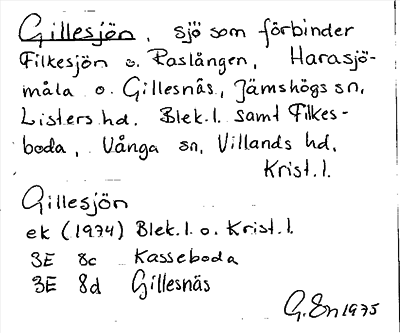 Gillesjön, sjö som förbinder
Filkesjön o. Raslången, Harasjö-
måla o. Gillesnäs, Jämshögs sn,
Listers hd. Blek.l. samt Filkes-
boda, Vånga sn, Villands hd,
Krist.l.
Gillesjön
ek (1974) Blek.l. o. Krist.l.
3E 8c Kasseboda
3E 8d Gillesnäs
G. En 1975